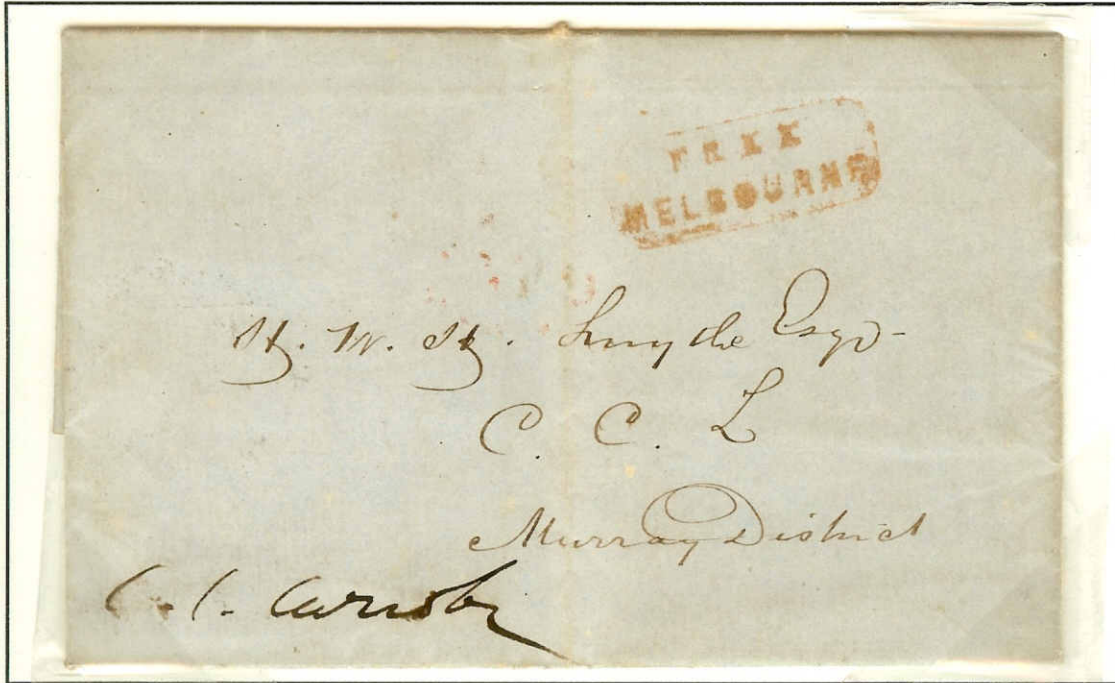 FREE
MELBOURNE
H. W. H. Smythe Esqr
C. C. L
Murray District